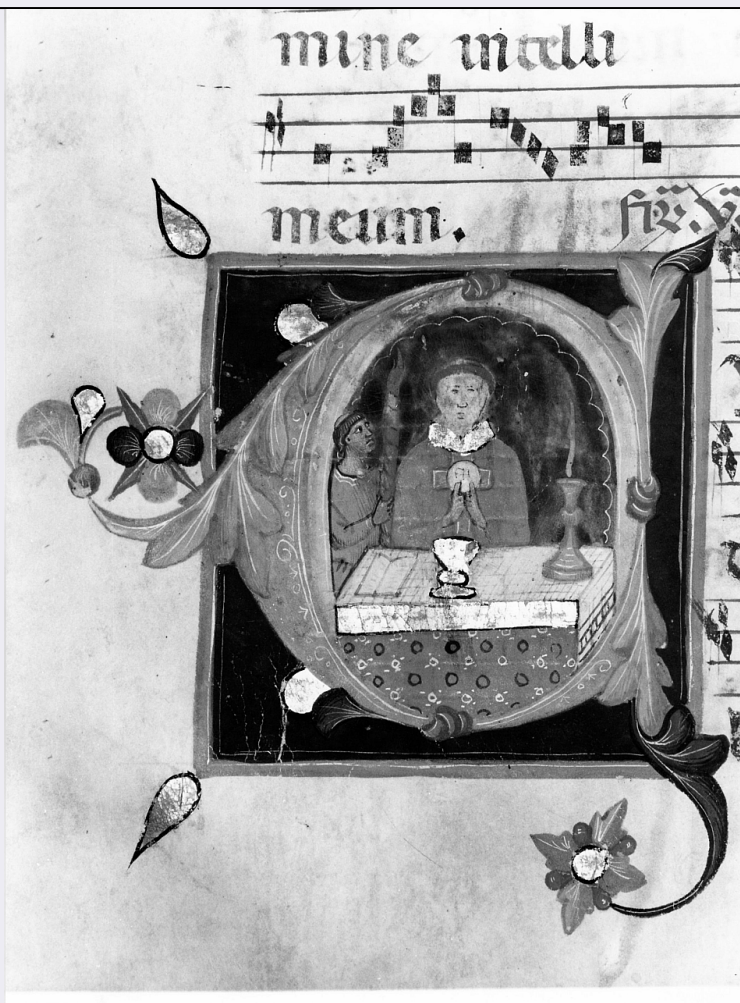 mine intelli
meum.